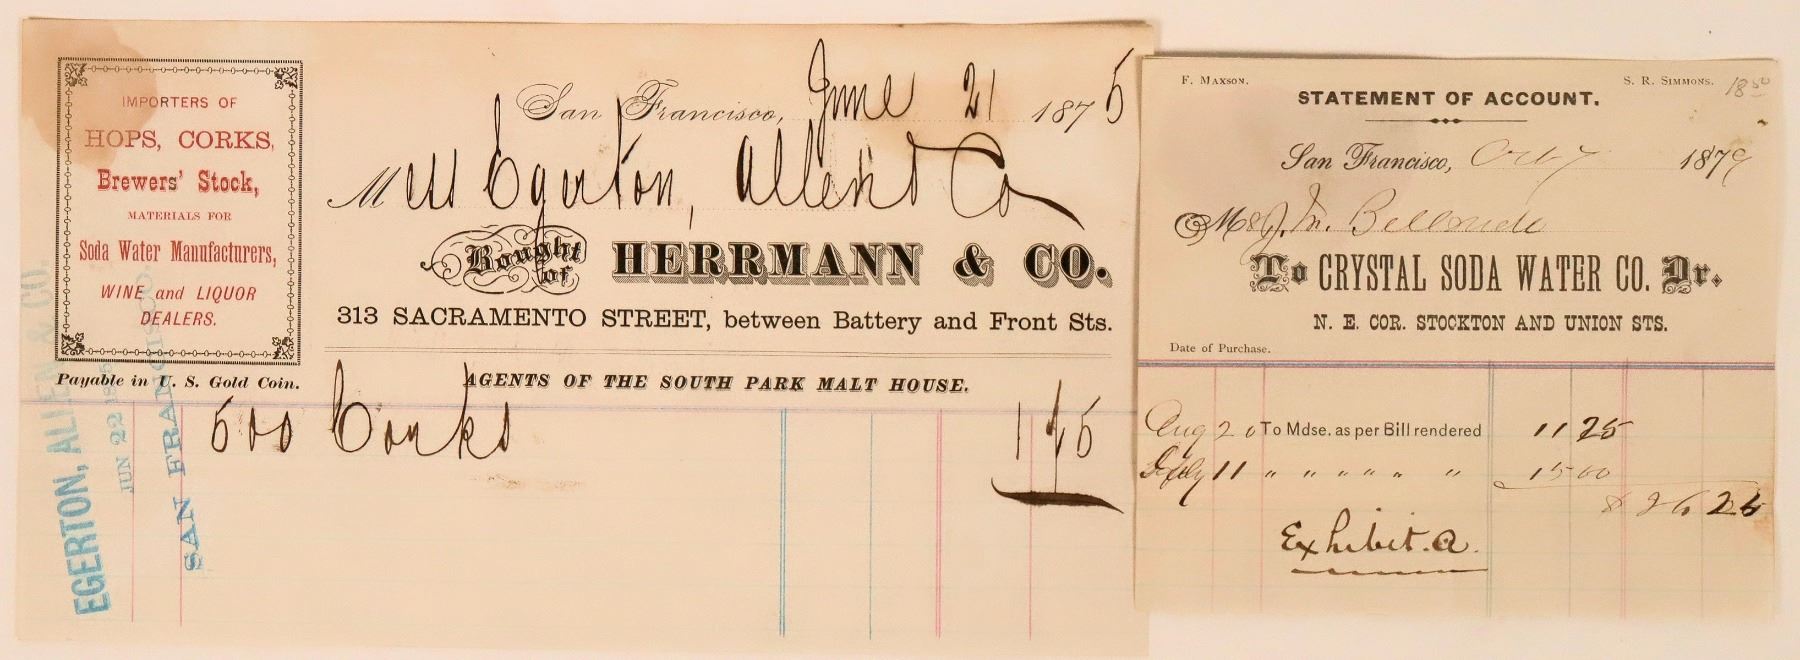 IMPORTERS OF
HOPS, CORKS,
Brewers' Stock,
MATERIALS FOR
Soda Water Manufacturers,
WINE and LIQUOR
DEALERS.
Payable in U. S. Gold Coin.
San Francisco, June 21 1875
Mess Egerton, Allen & Co
Bought of HERRMANN & CO.
313 SACRAMENTO STREET, between Battery and Front Sts.
AGENTS OF THE SOUTH PARK MALT HOUSE.
500 Corks
EGERTON, ALLEN & CO.
JUN 22 1875
SAN FRANCISCO.
F. MAXSON. S. R. SIMMONS. 18 50
STATEMENT OF ACCOUNT.
San Francisco, Oct 7 1879
M J. M.
To CRYSTAL SODA WATER CO. Dr.
N. E. COR. STOCKTON AND UNION STS.
Date of Purchase.
Aug 20 To Mdse. as per Bill rendered 11 25
11 " " " " " " 15 00
$ 26 25
Exhibit. a.